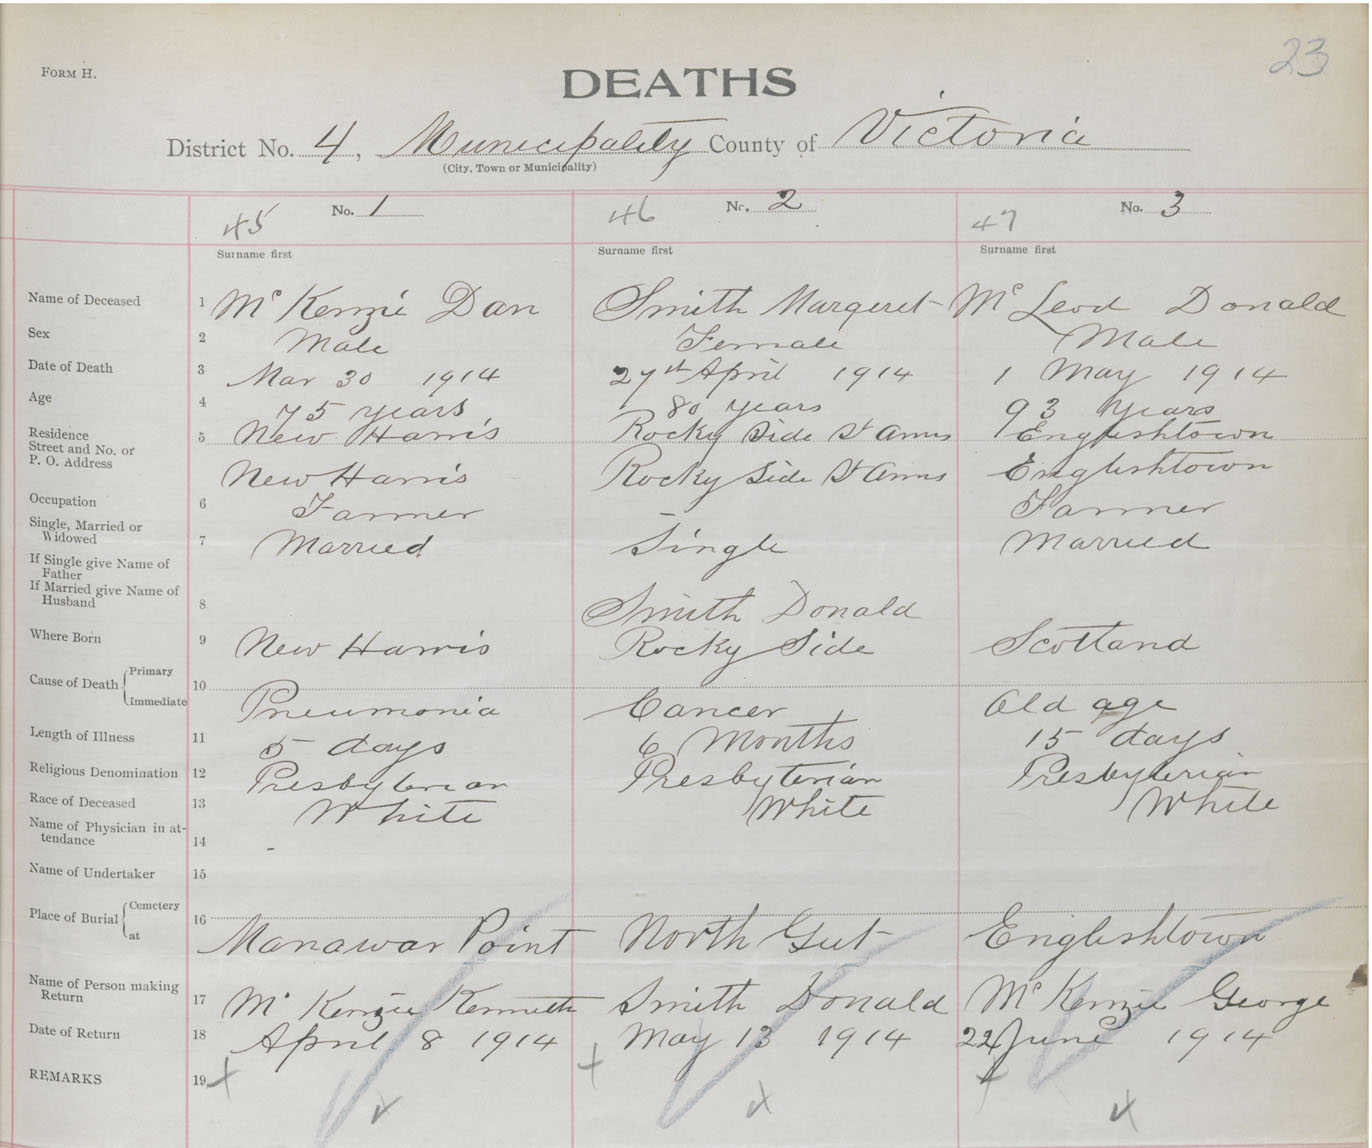 23
FORM H.
DEATHS
District No. 4, Municipality County of Victoria
(City, Town or Municipality)
45 No. 1 46 No. 2 47 No. 3
Surname first Surname first Surname first
Name of Deceased 1 Mc Kenzie Dan Smith Margeret Mc Leod Donald
Sex 2 Male Female Male
Date of Death 3 Mar 30 1914 27th April 1914 1 May 1914
Age 4 75 years 80 years 93 years
Residence 5 New Harris Rocky Side St Anns Englishtown
Street and No. or
P. O. Address New Harris Rocky Side St Anns Englishtown
Occupation 6 Farmer Farmer
Single, Married or
Widowed 7 Married Single Married
If Single give Name of
Father
If Married give Name of
Husband 8 Smith Donald
Where Born 9 New Harris Rocky Side Scotland
Cause of Death Primary 10
Immediate Pneumonia Cancer Old age
Length of Illness 11 5 days 6 Months 15 days
Religious Denomination 12 Presbyterian Presbyterian Presbyterian
Race of Deceased 13 White White White
Name of Physician in at-
tendance 14 -
Name of Undertaker 15
Place of Burial Cemetery 16
at Manawar Point North Gut Englishtown
Name of Person making
Return 17 Mc Kenzie Kenneth Smith Donald Mc Kenzie George
Date of Return 18 April 8 1914 May 13 1914 22 June 1914
REMARKS 19